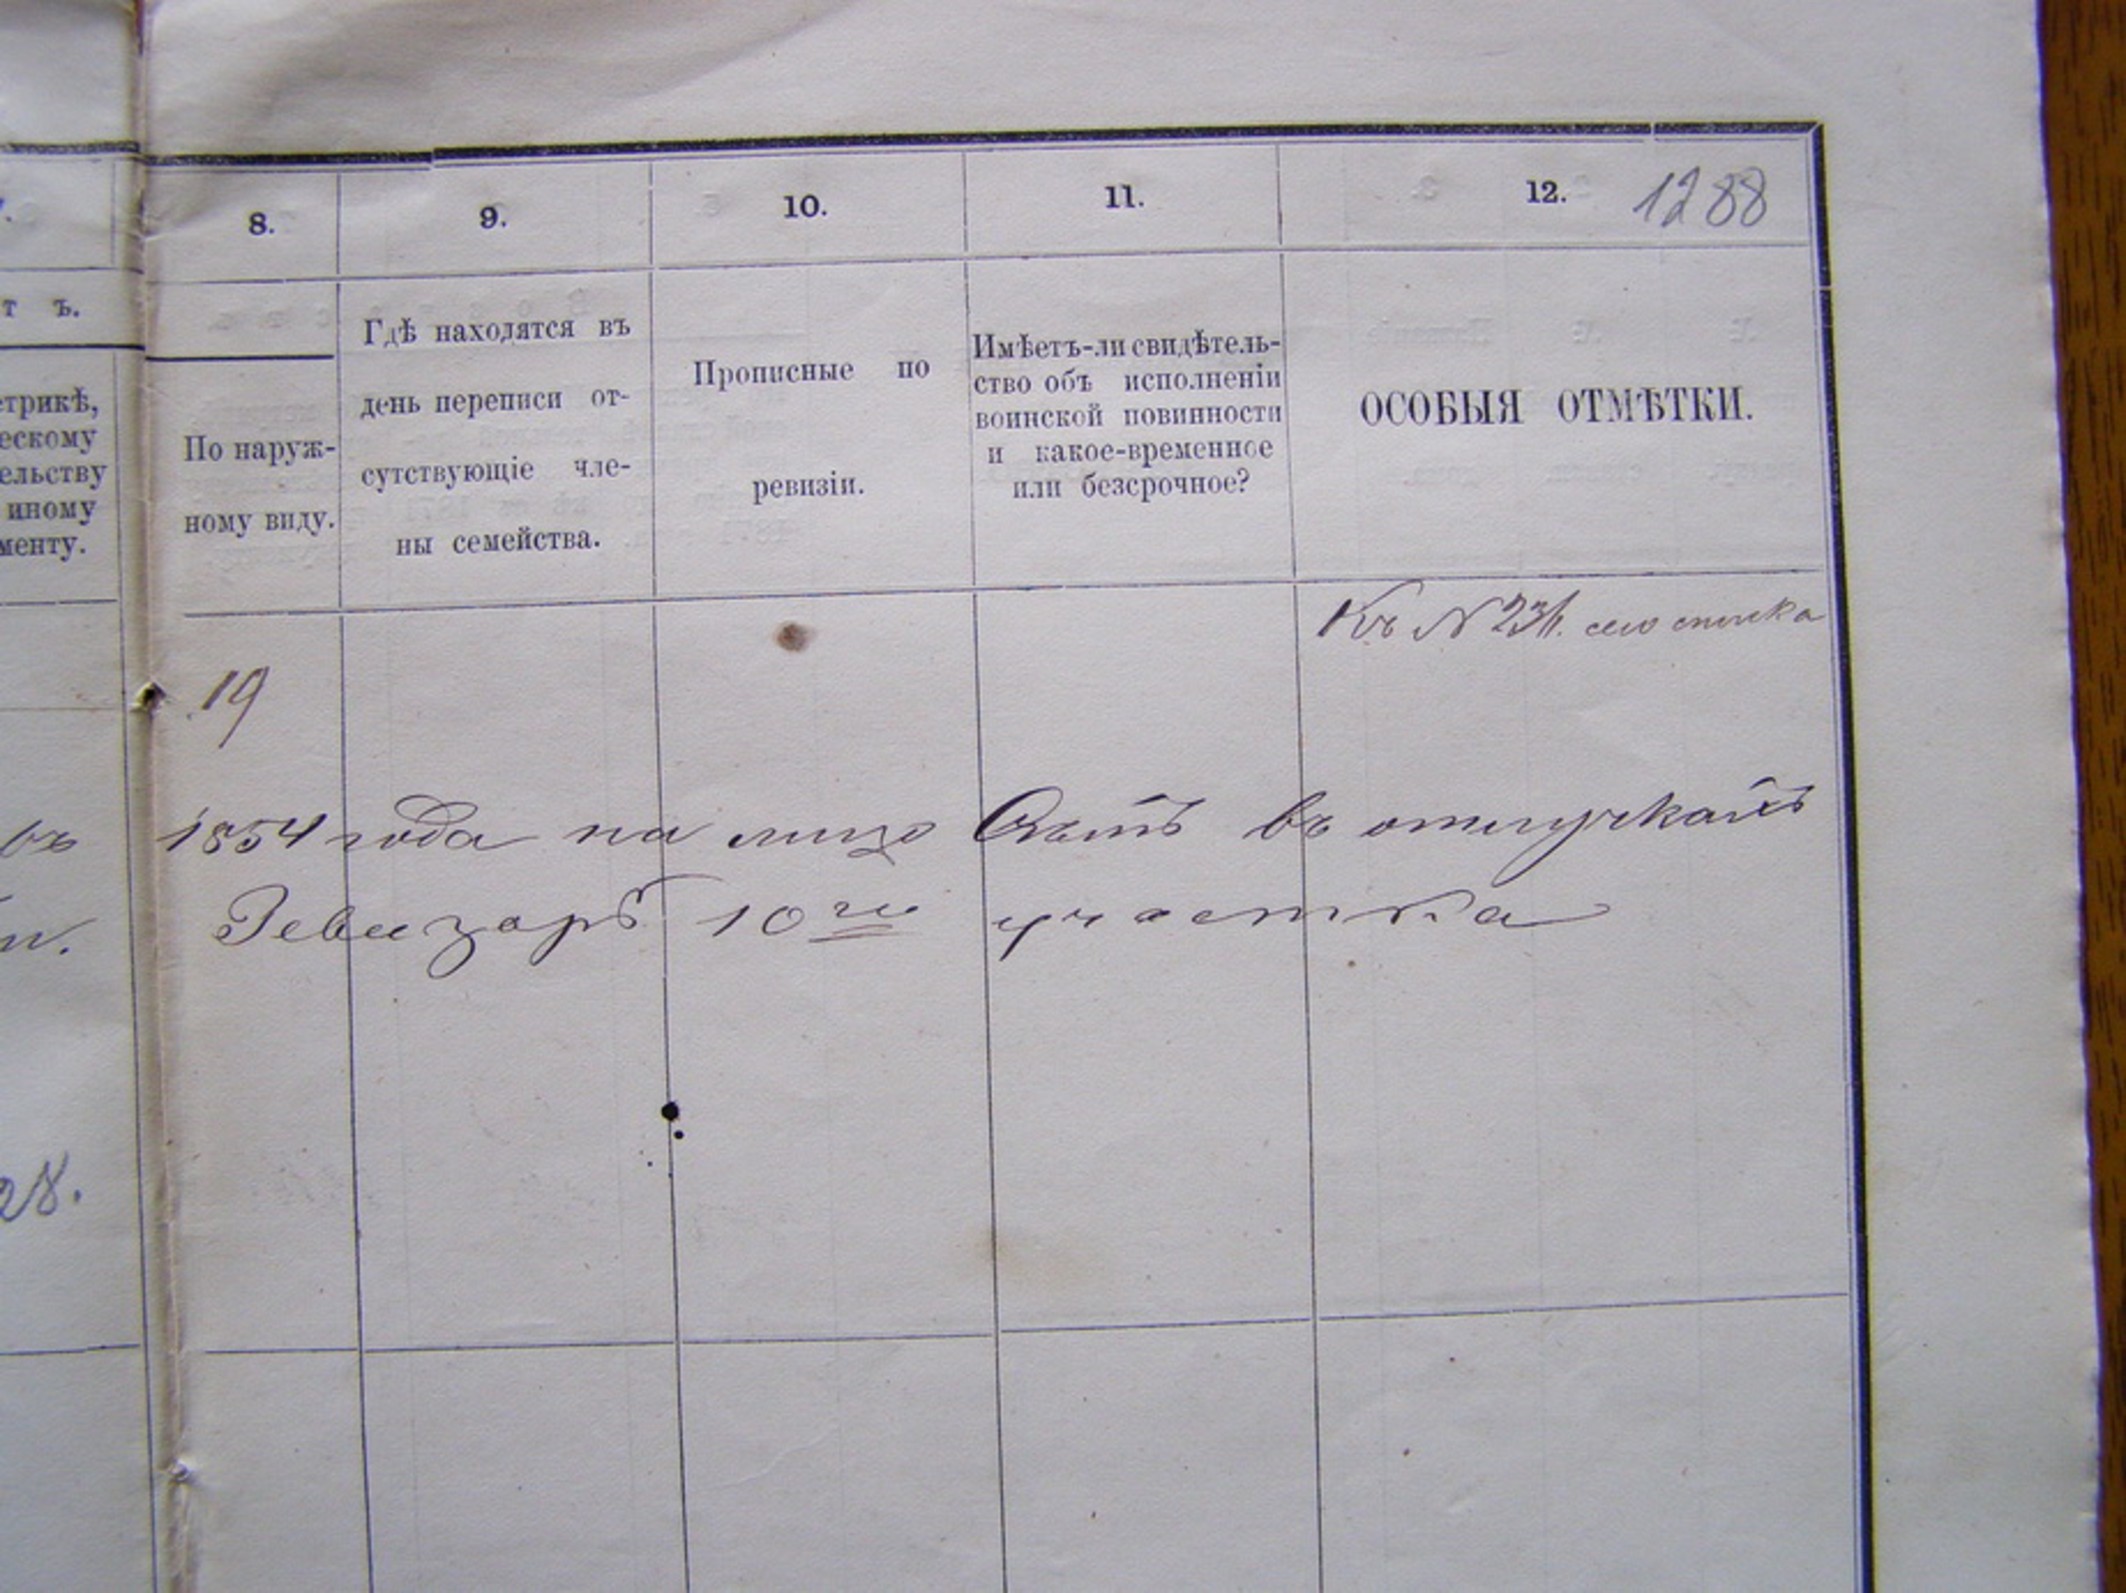 8. 9. 10. 11. 12. 1288
т ъ.
етрикѣ,
ескому
ельству
иному
менту.
По наруж-
ному виду.
Гдѣ находятся въ
день переписи от-
сутствующіе чле-
ны семейства.
Прописные по
ревизіи.
Имѣетъ-ли свидѣтель-
ство объ исполненіи
воинской повинности
и какое-временное
или безсрочное?
ОСОБЫЯ ОТМѢТКИ.
Къ № списка
19
въ 1854 года на лицо въ отлучкахъ
Ревизоръ 10го участка
28.